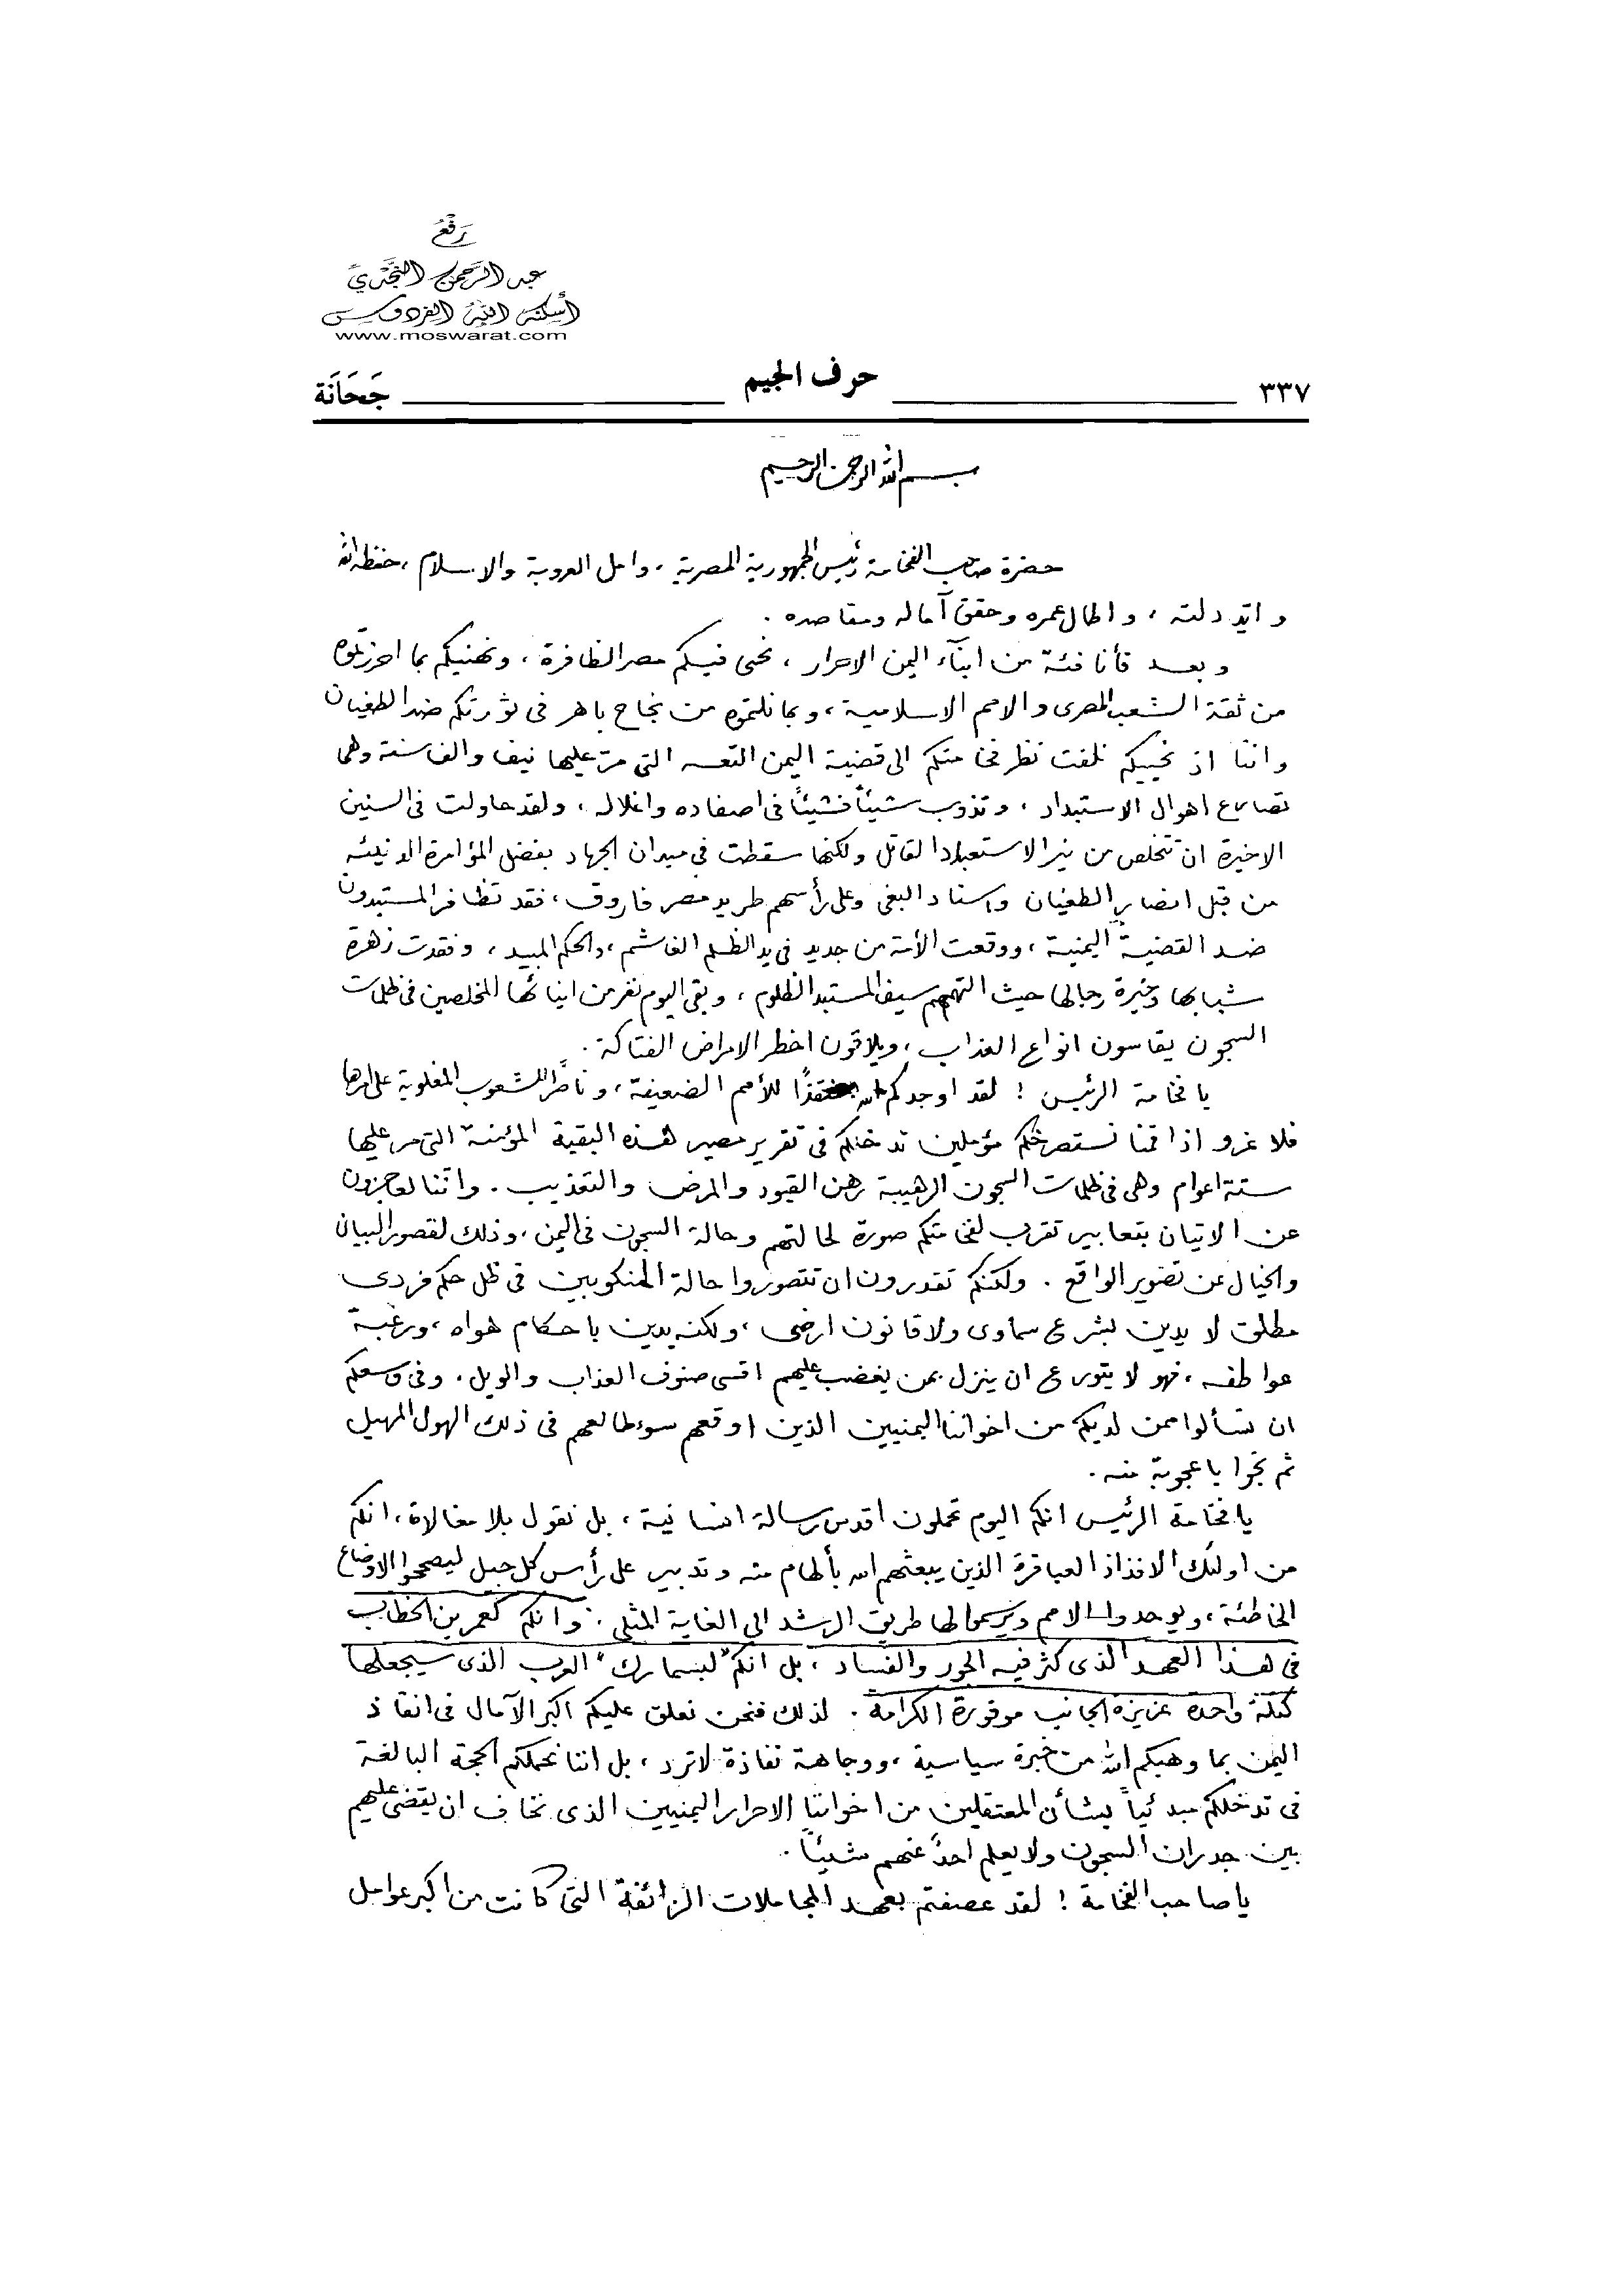 رَفْعُ
عبد الرَّحمن النَّجْديِّ
أسكنه اللهُ الفردوس
www.moswarat.com
٣٣٧ حرف الجيم جَحَانَة
بسم الله الرحمن الرحيم
حضرة صاحب الفخامة رئيس الجمهورية المصرية ، وامل العروبة والاسلام ، حفظه الله
و ايّد دولته ، واطال عمره وحقق آماله ومقاصده .
و بعد فأنا فئة من ابنآء اليمن الاحرار ، نحيى فيكم مصر الظافرة ، ونهنيكم بما احرزتموه
من ثقة الشعب المصرى والامم الاسلامية ، وبما نلتموه من نجاح باهر فى ثورتكم ضد الطغيان
واننا اذ نحييكم نلفت نظر فخامتكم الى قضية اليمن التعسه التى مرّ عليها نيف والف سنة وهى
تصارع اهوال الاستبداد ، وتذوب شيئاً فشيئاً فى اصفاده واغلاله ، ولقد حاولت فى السنين
الاخيرة ان تتخلص من نير الاستعباد القاتل ولكنها سقطت فى ميدان الجهاد بفضل المؤامرة الدنيئه
من قبل انصار الطغيان واسناد البغى وعلى رأسهم طريد مصر فاروق ، فقد تظافر المستبدون
ضد القضية اليمنية ، ووقعت الأمة من جديد فى يد الظلم الغاشم ، والحكم المبيد ، وفقدت زهرة
شبابها وخيرة رجالها حيث التهمهم سيف المستبد الظلوم ، وبقى اليوم نفر من ابنائها المخلصين فى ظلمات
السجون يقاسون انواع العذاب ، ويلاقون اخطر الامراض الفتاكة .
يا فخامة الرئيس ! لقد اوجدكم الله منقذًا للأمم الضعيفة ، وناصرًا للشعوب المغلوبة على امرها
فلا غرو اذا قمنا نستصرخكم مؤملين تدخلكم فى تقرير مصير هذه البقية المؤمنة التى مر عليها
ستة اعوام وهى فى ظلمات السجون الرهيبة رهن القيود والمرض والتعذيب . واننا لعاجزون
عن الاتيان بتعابير تقرب لفخامتكم صورة لحالتهم وحالة السجون فى اليمن ، وذلك لقصور البيان
والخيال عن تصوير الواقع . ولكنكم تقدرون ان تتصوروا حالة المنكوبين فى ظل حكم فردى
مطلق لا يدين بشرع سماوى ولا قانون ارضى ، ولكنه يدين باحكام هواه ، ورغبة
عواطفه ، فهو لا يتورع ان ينزل بمن يغضب عليهم اقسى صنوف العذاب والويل . وفى وسعكم
ان تسألوا ممن لديكم من اخواننا اليمنيين الذين اوقعهم سوء طالعهم فى ذلك الهول المهيل
ثم نجوا باعجوبة منه .
يا فخامة الرئيس انكم اليوم تحملون اقدس رسالة انسانية ، بل نقول بلا مغالاة ، انكم
من اولئك الافذاذ العباقرة الذين يبعثهم الله بألهام منه وتدبير على رأس كل جيل ليصححوا الاوضاع
الخاطئة ، ويوحدوا الامم ويرسموا لها طريق الرشد الى الغاية المثلى . وانكم كعمر بن الخطاب
فى هذا العهد الذى كثر فيه الجور والفساد ، بل انكم "لبسمارك" العرب الذى سيجعلها
كتلة واحدة عزيزة الجانب موفورة الكرامة . لذلك فنحن نعلق عليكم اكبر الآمال فى انقاذ
اليمن بما وهبكم الله من خبرة سياسية ، ووجاهة نفاذة لا ترد ، بل اننا نحملكم الحجة البالغة
فى تدخلكم مبدئياً بشأن المعتقلين من اخواننا الاحرار اليمنيين الذى نخاف ان يقضى عليهم
بين جدران السجون ولا يعلم احدٌ عنهم شيئاً .
يا صاحب الفخامة ! لقد عصفتم بعهد المجاملات الزائفة التى كانت من اكبر عوامل